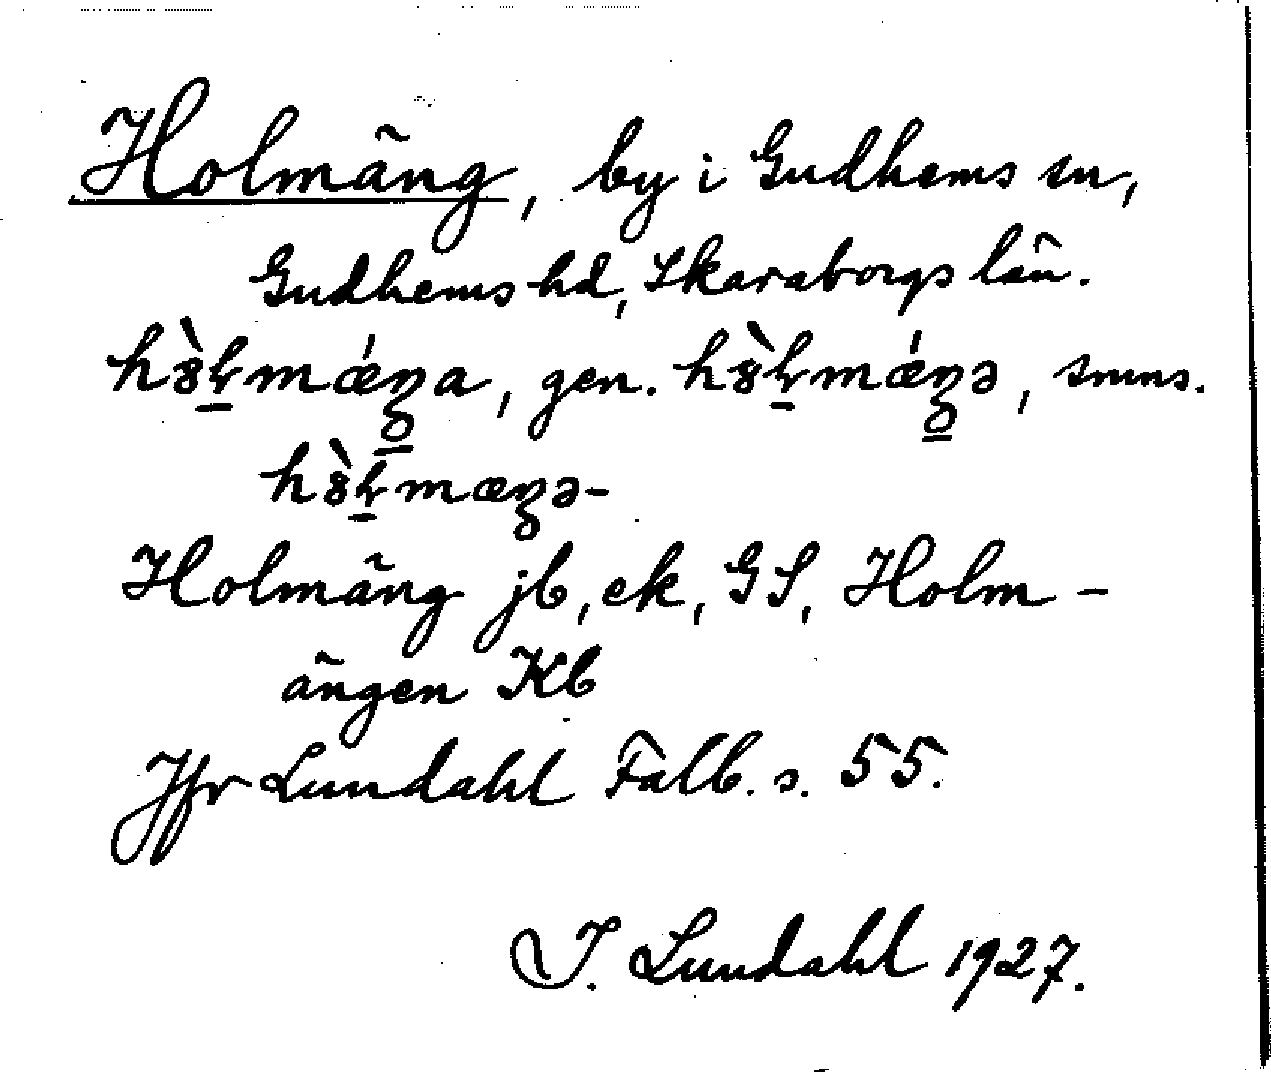 Holmäng, by i Gudhems sn,
Gudhems hd, Skaraborgs län.
hȣ̀ɫ̱mǽŋa, gen. hȣ̀ɫ̱mǽŋə, smns.
hȣ̀ɫ̱mæŋə-
Holmäng jb, ek, GS, Holm-
ängen Kb
Jfr Lundahl Falb. s. 55.
I. Lundahl 1927.